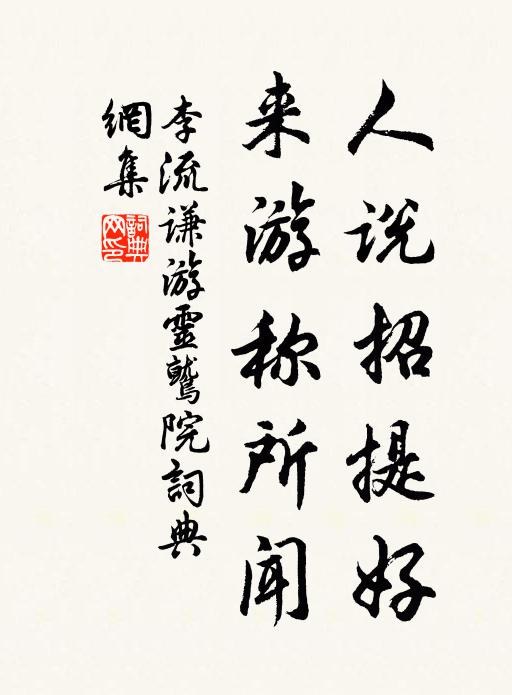 人说招提好
来游称所闻
李流谦游靈鷲院詞典
網集
詞典
网印